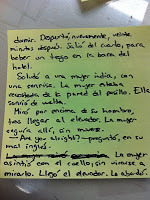 dormir. Despertó nuevamente, veinte
minutos después. Salió del cuarto, para
beber un trago en la barra del
hotel.
Saludó a una mujer india, con
una sonrisa. La mujer estaba
recostada de la pared del pasillo. Ella
sonrió de vuelta.
Miró por encima de su hombro,
tras llegar al elevador. La mujer
seguía allí, sin moverse.
— Are you alright? —preguntó, en su
mal inglés.
La mujer
asintió con el cuello, sin
mirarlo. Llegó el elevador. Lo abordó.